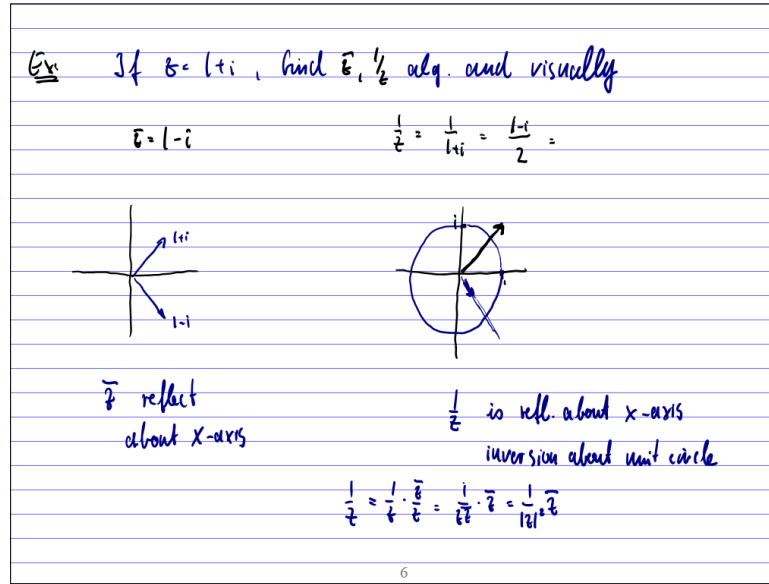 Ex: If z = 1+i, find z̄, 1/z alg. and visually
z̄ = 1-i
1/z = 1/(1+i) = (1-i)/2 =
1+i
1-i
i
1
z̄ reflect
about x-axis
1/z is refl. about x-axis
inversion about unit circle
1/z = 1/z · z̄/z̄ = 1/(zz̄) · z̄ = 1/|z|² · z̄
6